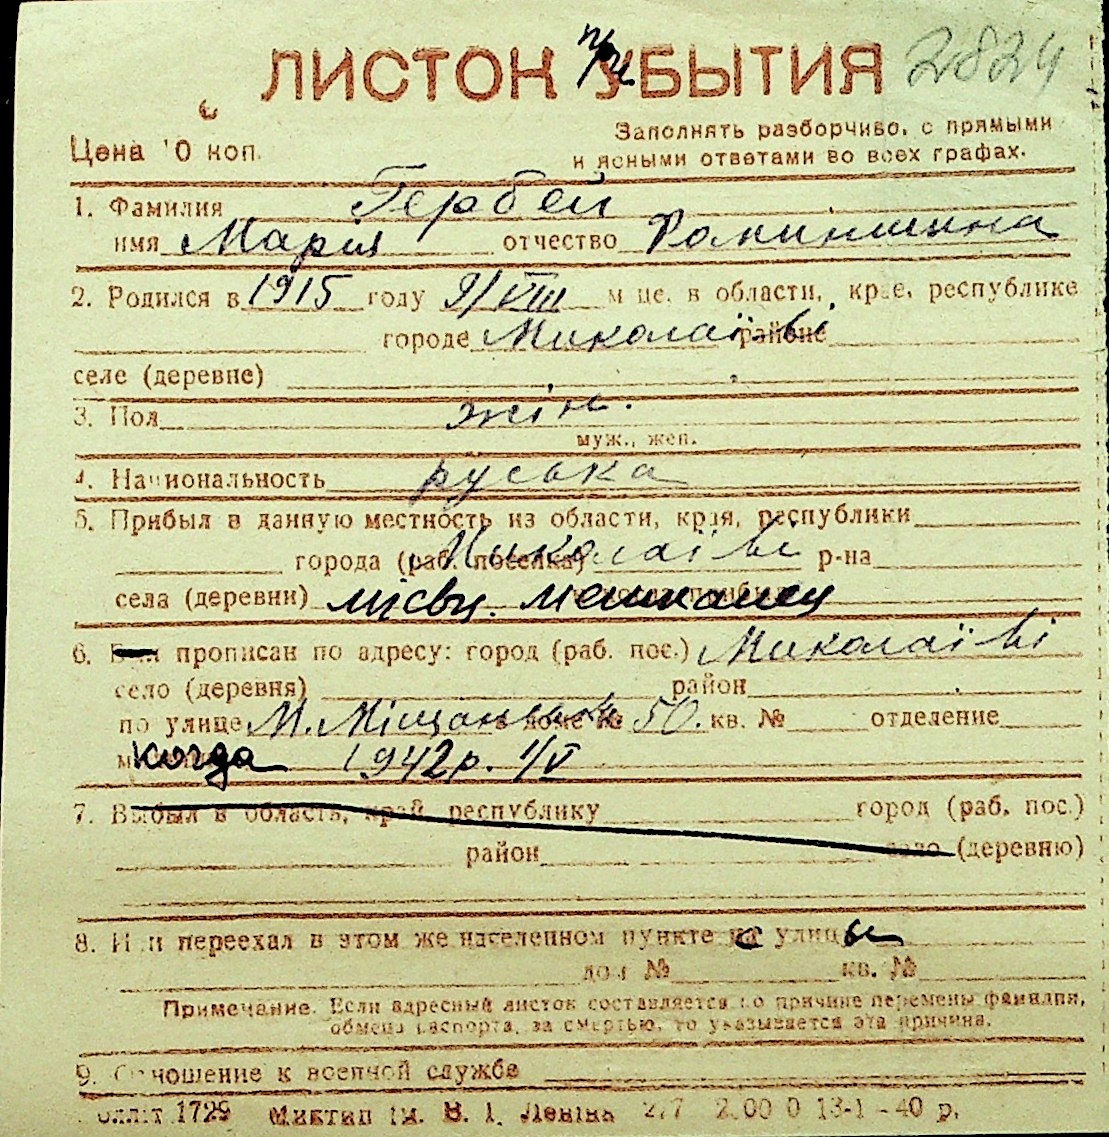 ЛИСТОК при УБЫТИЯ 2824
Цена 10 коп.
Заполнять разборчиво, с прямыми
и ясными ответами во всех графах.
1. Фамилия Гербей
имя Марія отчество
2. Родился в 1915 году 9/VIII м-це, в области, крае, республике
городе Миколаїві районе
селе (деревне)
3. Пол жін.
муж., жен.
4. Национальность руська
5. Прибыл в данную местность из области, края, республики
города (раб. поселка) Миколаїві р-на
села (деревни) місц. мешканец
6. Был прописан по адресу: город (раб. пос.) Миколаїві
село (деревня) район
по улице М. Міщанська в доме № 50. кв. № отделение
когда 1942 р. 1/V
7. Выбыл в область, край, республику город (раб. пос.)
район село (деревню)
8. Или переехал в этом же населенном пункте с улицы
дом № кв. №
Примечание. Если адресный листок составляется по причине перемены фамилии,
обмена паспорта, за смертью, то указывается эта причина.
9. Отношение к военной службе
Облліт 1729 Миктип ім. В. І. Леніна 277 2.00 0 13-1-40 р.